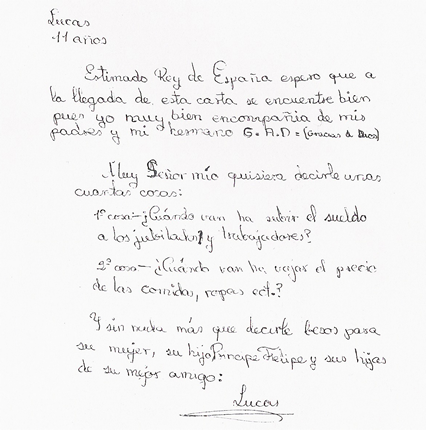 Lucas
11 años
Estimado Rey de España espero que a
la llegada de esta carta se encuentre bien
pues yo muy bien encompañia de mis
padres y mi hermano G. A. D = (Gracias a Dios)
Muy Señor mío quisiera decirle unas
cuantas cosas:
1ª cosa-¿Cuándo van ha subir el sueldo
a los jubilados y trabajadores?
2ª cosa-¿Cuándo van ha vajar el precio
de las comida, ropas ect.?
Y sin nada más que decirle besos para
su mujer, su hijo Príncipe Felipe y sus hijas
de su mejor amigo:
Lucas